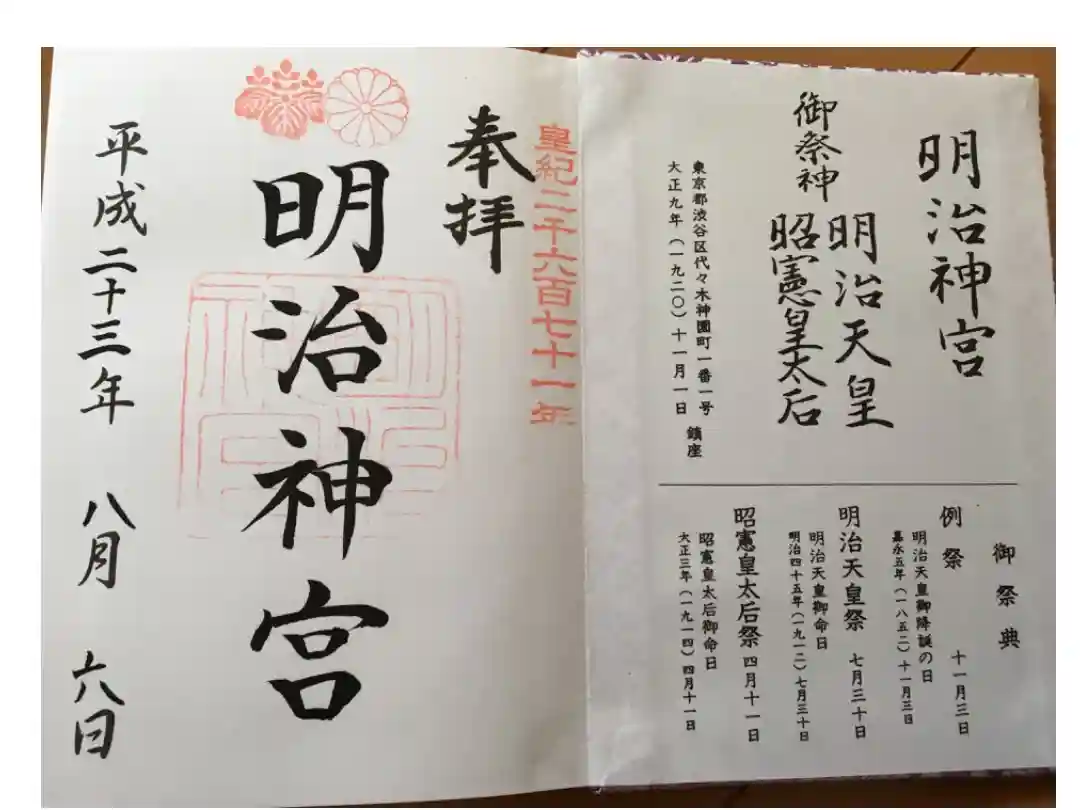 明治神宮
御祭神
明治天皇
昭憲皇太后
東京都渋谷区代々木神園町一番一号
大正九年（一九二〇）十一月一日 鎮座
御祭典
例祭 十一月三日
明治天皇御降誕の日
嘉永五年（一八五二）十一月三日
明治天皇祭 七月三十日
明治天皇御命日
明治四十五年（一九一二）七月三十日
昭憲皇太后祭 四月十一日
昭憲皇太后御命日
大正三年（一九一四）四月十一日
皇紀二千六百七十一年
奉拝
明治神宮
平成二十三年 八月 六日